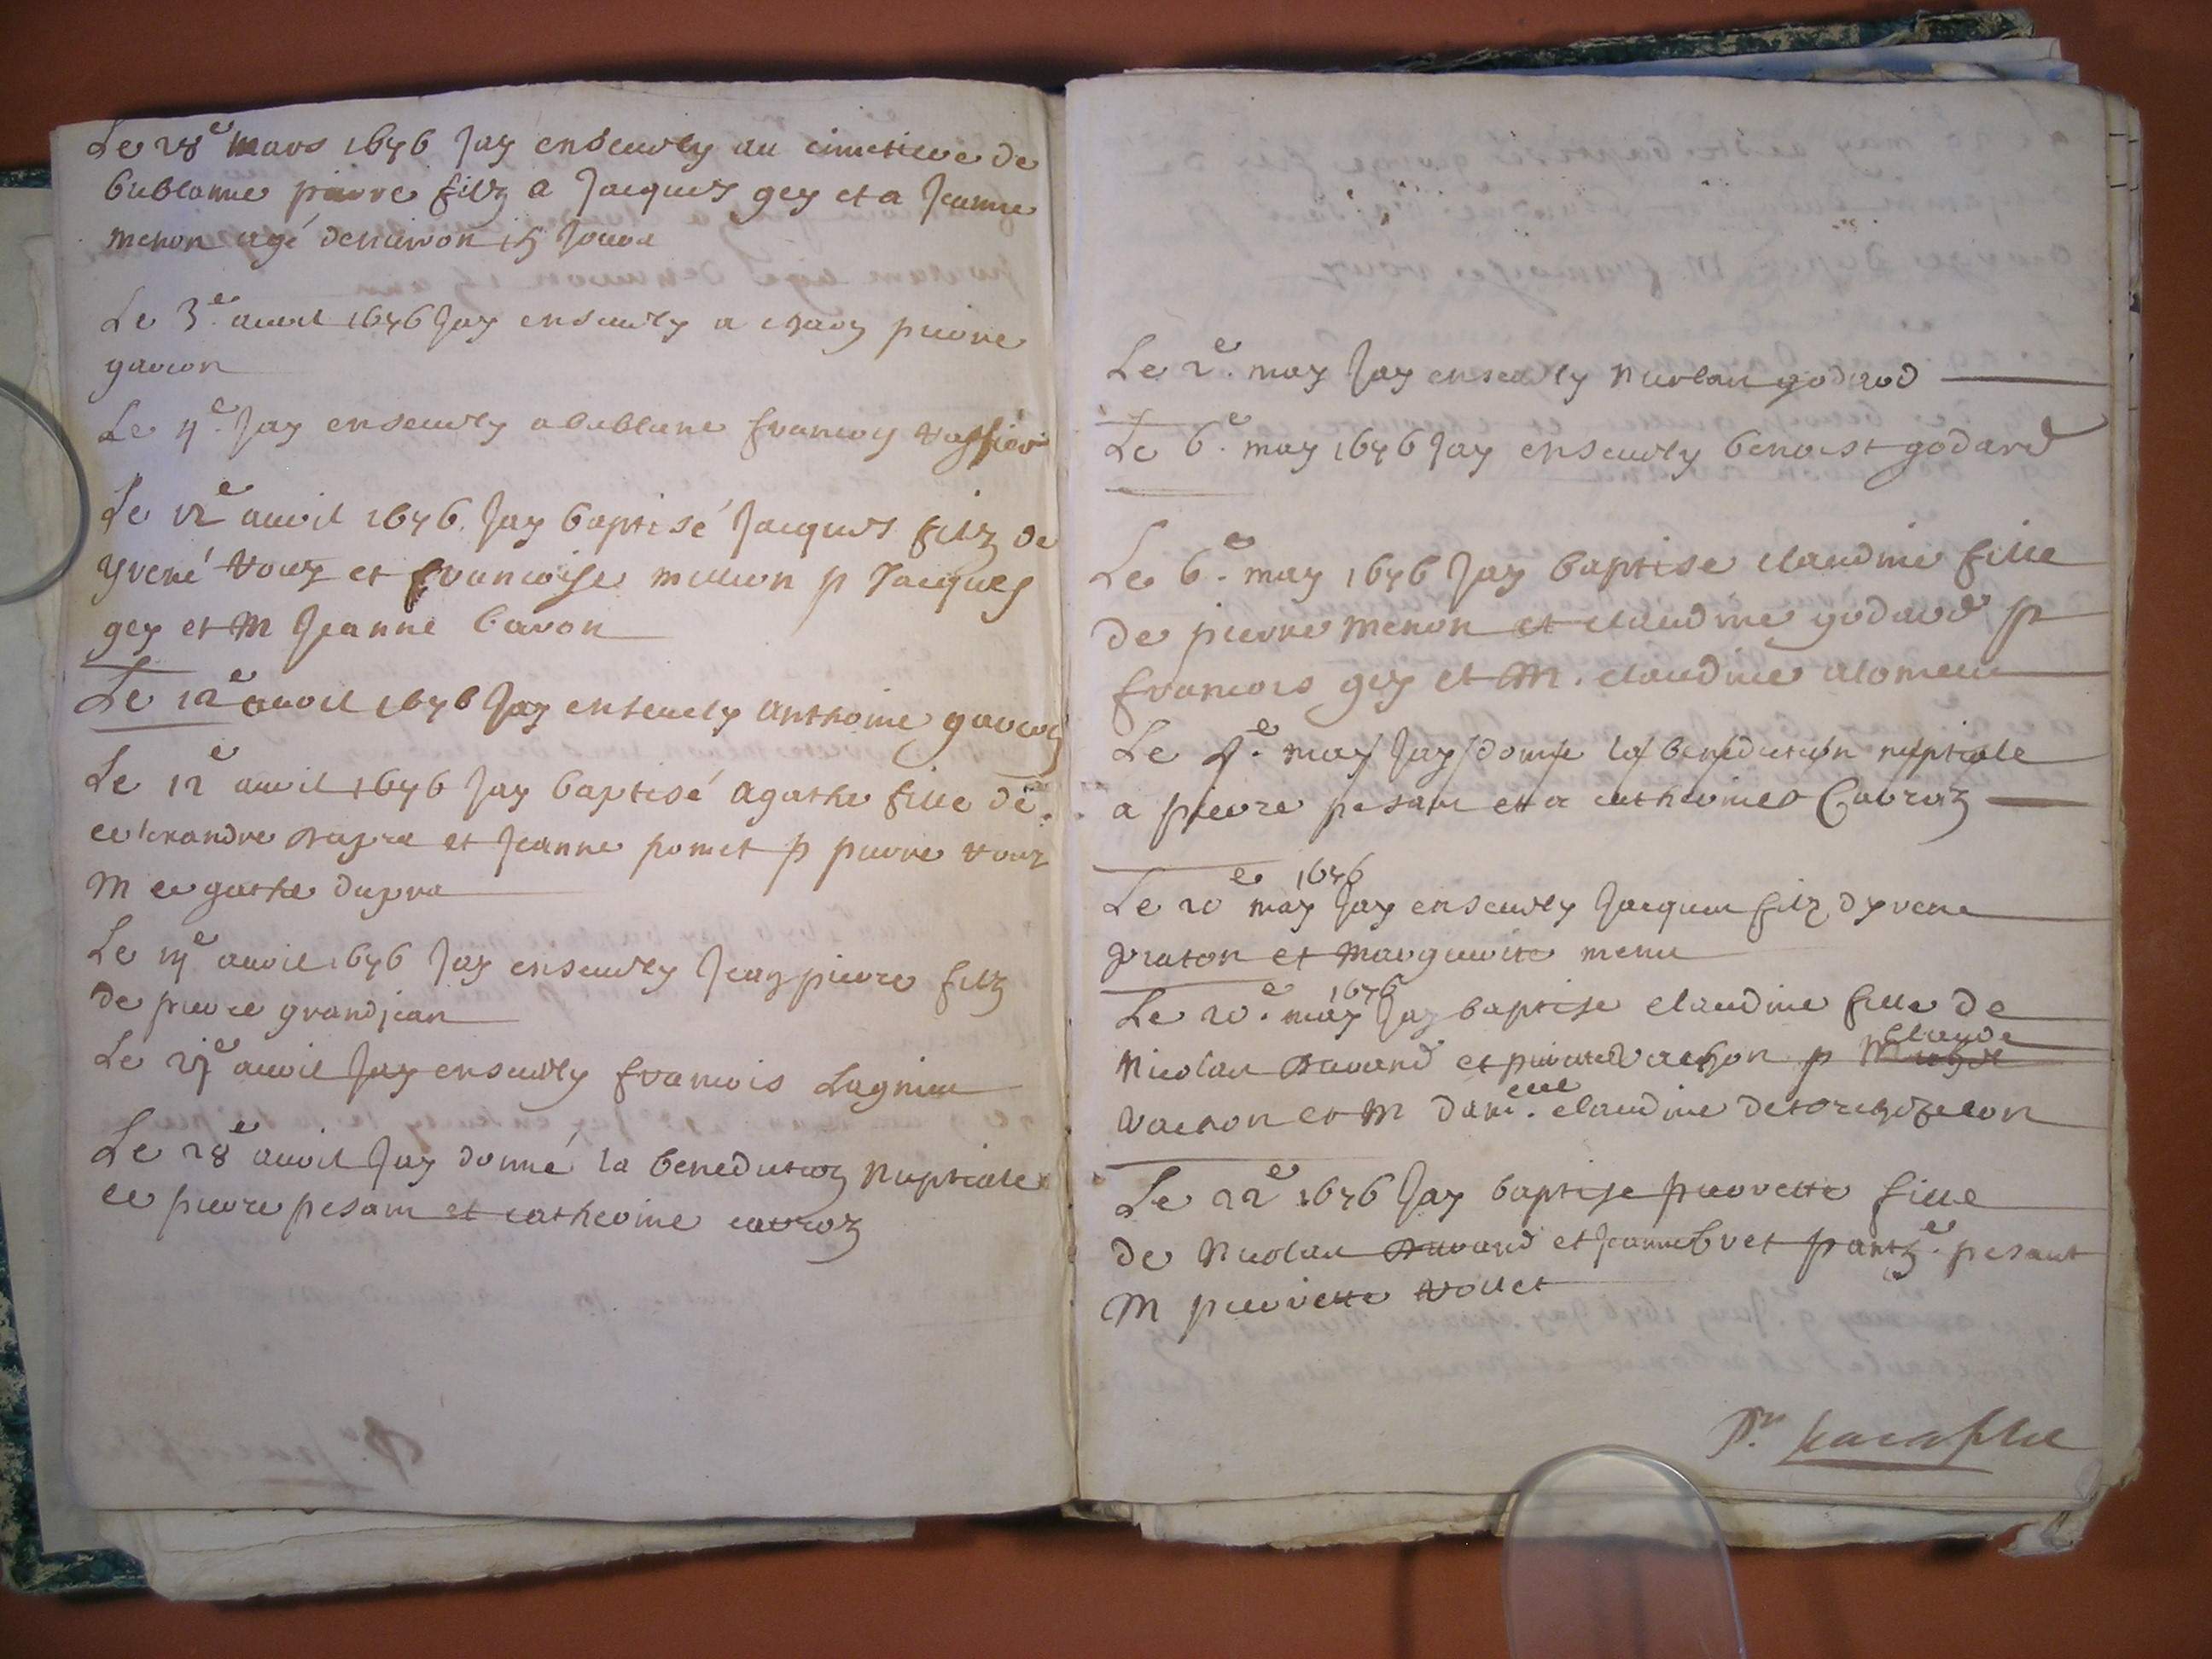 Le 28e mars 1676 Jay ensevely au cimetiere de
bublanne pierre filz a Jacques gey et a Jeanne
menon agé denviron 15 Jours
Le 3e avril 1676 Jay ensevely a pierre
gavion
Le 4e Jay ensevely a bublane francoy
Le 12e avril 1676 Jay baptisé Jacques filz de
yvené voux et francoise million p Jacques
gey et M Jeanne baron
Le 12e avril 1676 Jay ensevely anthoine
Le 12e avril 1676 Jay baptisé agathe fille de
alexandre dupra et Jeanne pomet p pierre voux
M agathe dupra
Le avril 1676 Jay ensevely Jean pierre filz
de pierre grandjean
Le avril Jay ensevely francois Lagnieu
Le 28e avril Jay donné la benediction Nuptiale
a pierre pesant et catherine cavroz
Le 2e. may Jay ensevely Nicolas godard
Le 6e. may 1676 Jay ensevely benoist godard
Le 6e. may 1676 Jay baptise claudine fille
de pierre menon et claudine godard p
francois gey et M. claudine
Le may Jay donne la benediction nuptiale
a pierre pesant et a catherine Cavroz
1676
Le 20e may Jay ensevely Jacques filz dyvene
graton et Marguerite menu
1676
Le 20e. may Jay baptise claudine fille de
claude
Nicolas durand et pierrette vachon p
vachon et M damelle. claudine
Le 22e 1676 Jay baptise pierrette fille
de Nicolas durand et Jeanne bret p antze. pesant
M pierrette vollet